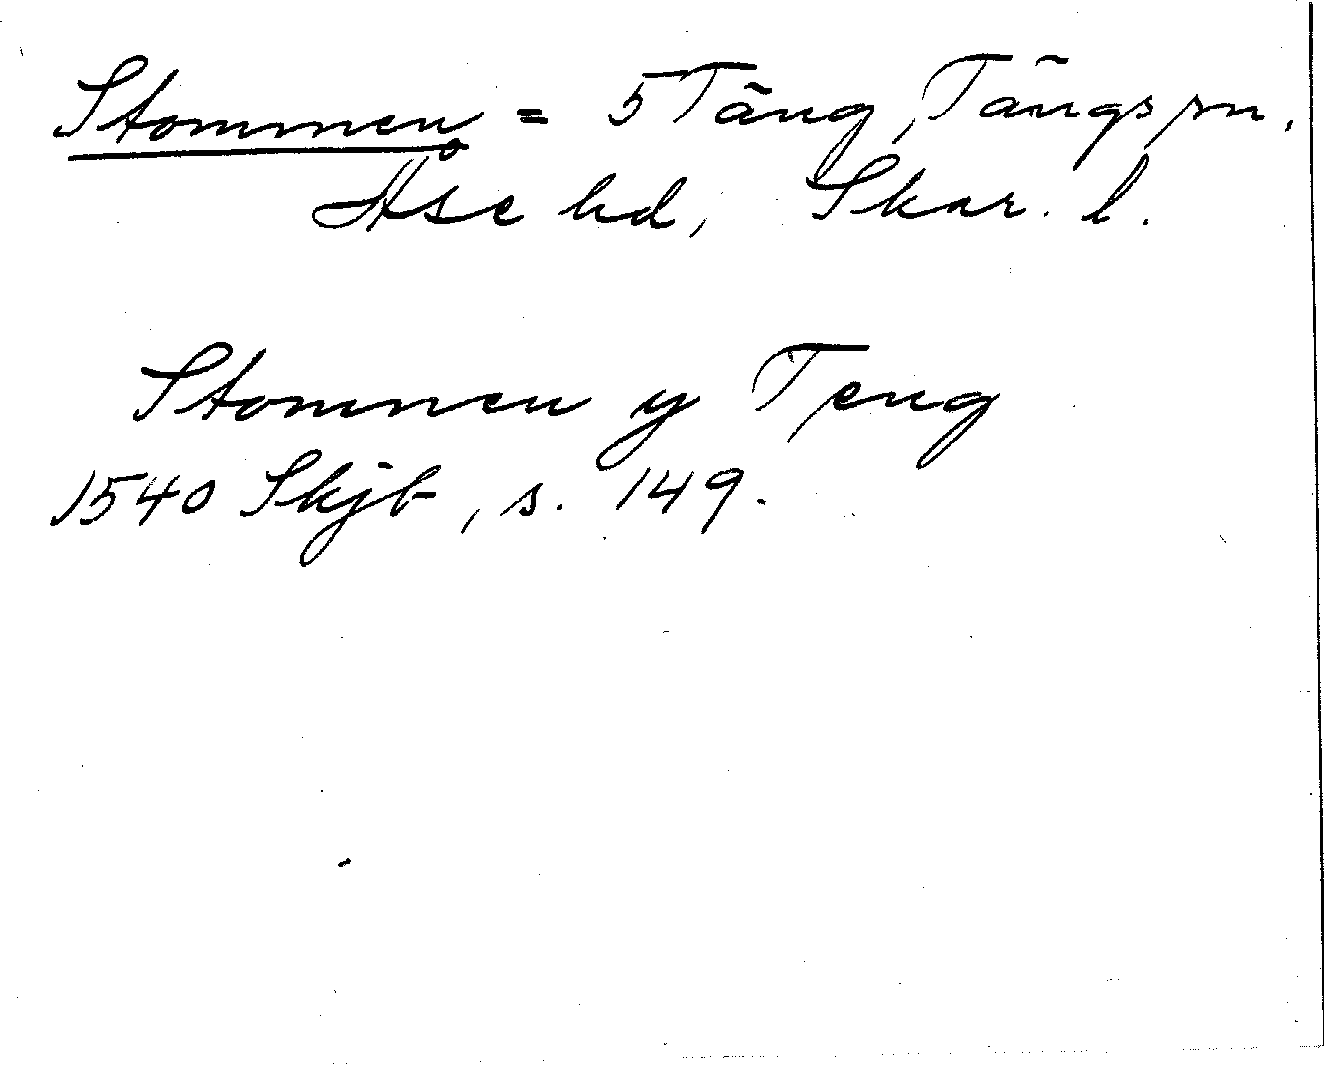 Stommen = 5 Täng, Tängs sn,
Åse hd, Skar. l.
Stommen y Teng
1540 Skjb, s. 149.